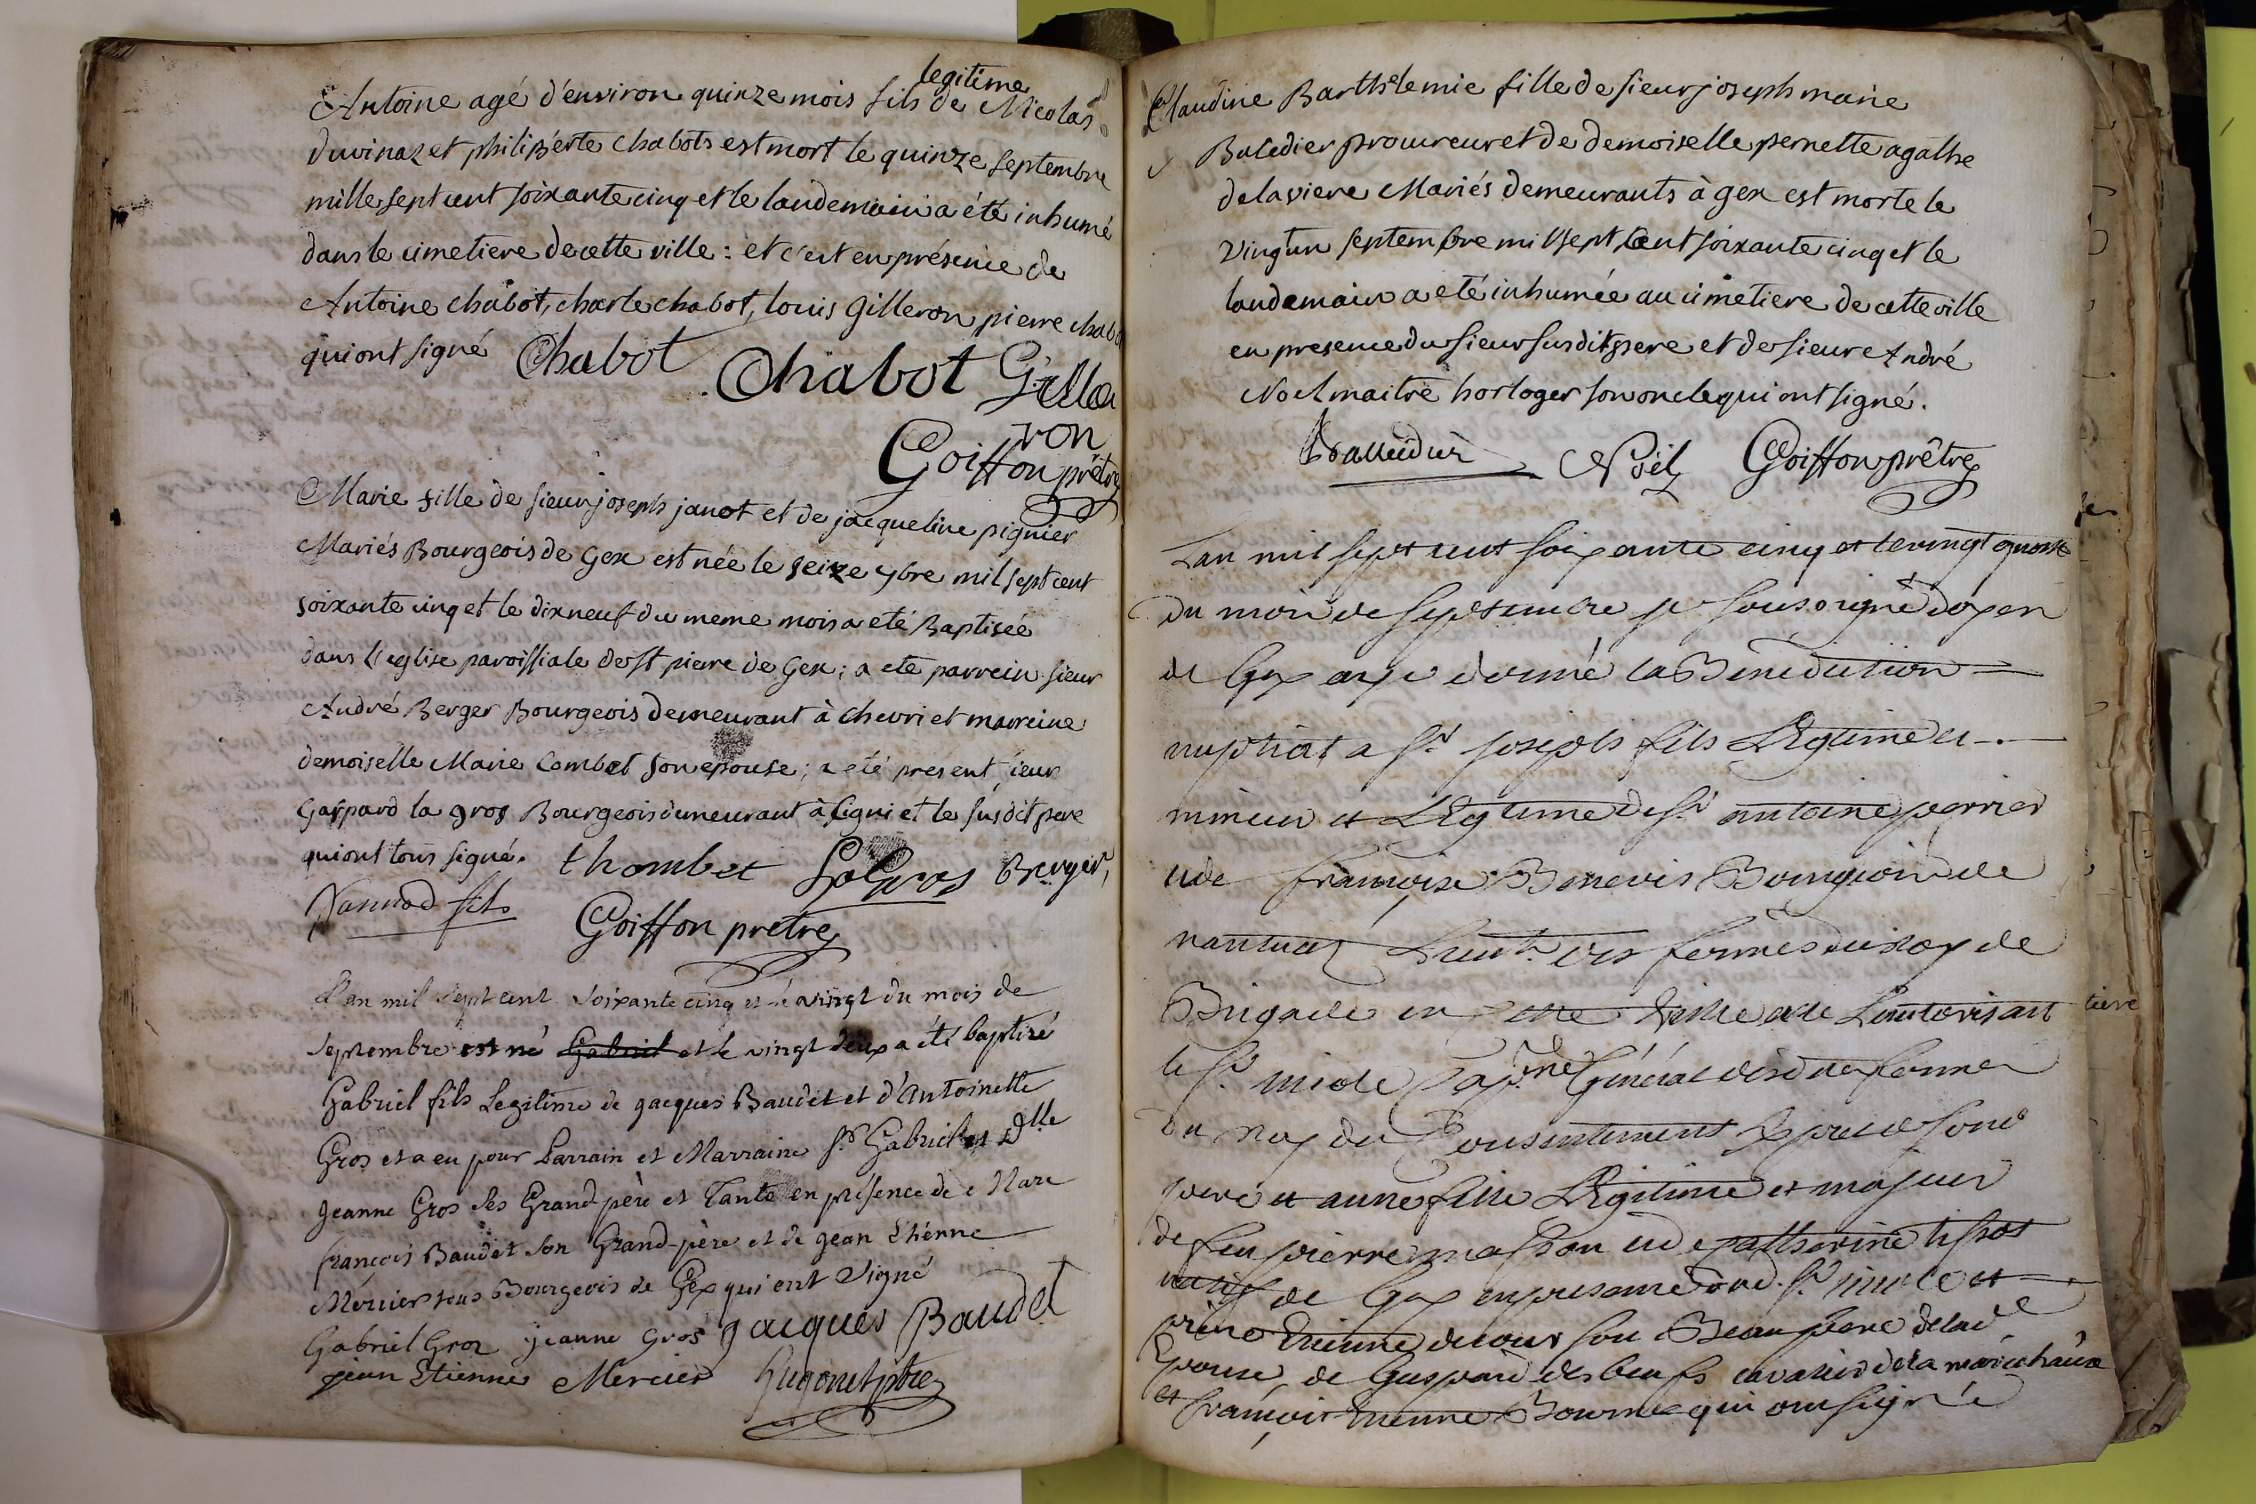 legitime
Antoine agé d'environ quinze mois fils de Nicolas
duvinaz et philiberte chabots est mort le quinze septembre
mille sept cent soixante cinq et le landemain a été inhumé
dans le cimetiere de cette ville : et c'est en présence de
Antoine chabot, charle chabot, louis Gilleron pierre chabo
qui ont signé Chabot Chabot Gille
ron
Goiffon prêtre
Marie fille de sieur joseph janot et de jacqueline pignier
Mariés Bourgeois de Gex est née le seize 7bre mil sept cent
soixante cinq et le dixneuf du meme mois a eté Baptisée
dans l'eglise paroissiale de st pierre de Gex ; a eté parrein sieur
André Berger Bourgeois demeurant à chevri et marreine
demoiselle Marie Combet son epouse ; a eté present sieur
Gaspard la gros Bourgeois demeurant à Segni et le susdit pere
qui ont tous signé. thombet LaGros Berger
fils
Goiffon pretre
L'an mil sept cent soixante cinq et le vingt du mois de
Septembre est né Gabriel et le vingt deux a été baptisé
Gabriel fils Legitime de jacques Baudet et d'Antoinette
Gros et a eu pour Parrain et Marraine sr Gabriel et dlle
jeanne Gros ses Grand-père et Tante en présence de Marc
françois Baudet son Grand-père et de jean Etienne
Mercier tous Bourgeois de Gex qui ont signé
Gabriel Gros jeanne Gros jacques Baudet
jean Etienne Mercier Hugonet ptre
Claudine Barthelemie fille de sieur joseph marie
Baledier procureur et de demoiselle pernette agathe
delaviere Mariés demeurants à gex est morte le
vingtun septembre mil sept cent soixante cinq et le
landemain a eté inhumée au cimetiere de cette ville
en presence du sieur susdit pere et de sieur André
Noel maitre horloger son oncle qui ont signé.
Noël Goiffon prêtre
Lan mil sept cent soixante cinq et le vingt quatre
du mois de septembre je soussigné doyen
de Gex ay donné la Benediction
nuptial a sr joseph fils Legitime et
mineur et Legitime de sr antoine perrier
et de françoise Benevis Bourgeois de
nantua Lieut. des fermes du Roy de
Brigade en cette ville de L'autorisant
le sr miole Capne Général des fermes
du Roy du Consentement Exprès de son
pere et anne fille Legitime et majeur
de feu pierre masson et de catherine tissot
natif de Gex en presence dud. sr miole et
Etienne decour son Beau pere de lad
Epouse, de Guspard desbeufs cavalier de la marechausé
et françois Etienne Bourne qui ont signé
tiere